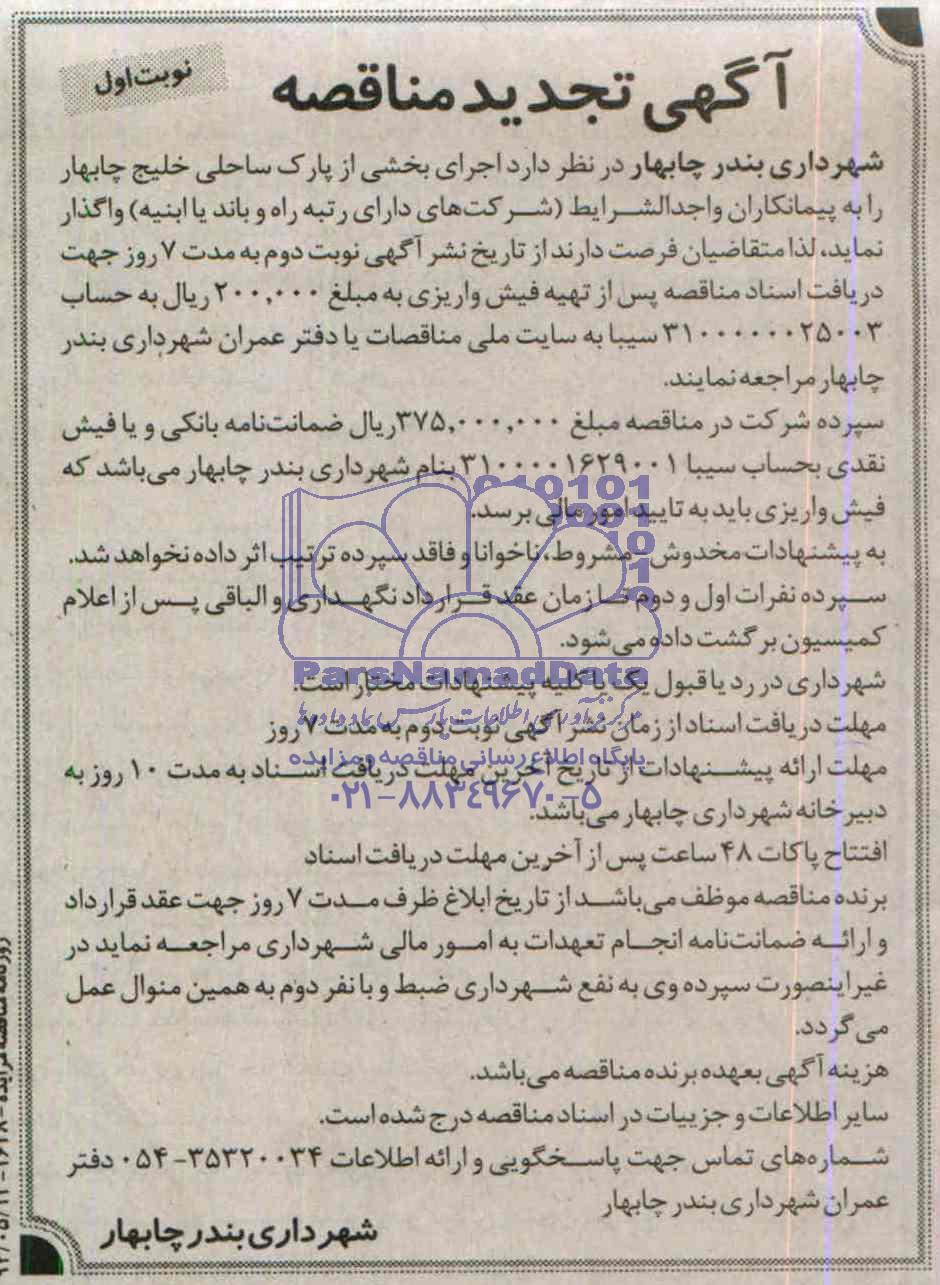 نوبت اول
آگهی تجدید مناقصه
شهرداری بندر چابهار در نظر دارد اجرای بخشی از پارک ساحلی خلیج چابهار
را به پیمانکاران واجدالشرایط (شرکت‌های دارای رتبه راه و باند یا ابنیه) واگذار
نماید، لذا متقاضیان فرصت دارند از تاریخ نشر آگهی نوبت دوم به مدت ۷ روز جهت
دریافت اسناد مناقصه پس از تهیه فیش واریزی به مبلغ ۲۰۰,۰۰۰ ریال به حساب
۳۱۰۰۰۰۰۰۲۵۰۰۳ سیبا به سایت ملی مناقصات یا دفتر عمران شهرداری بندر
چابهار مراجعه نمایند.
سپرده شرکت در مناقصه مبلغ ۳۷۵,۰۰۰,۰۰۰ریال ضمانت‌نامه بانکی و یا فیش
نقدی بحساب سیبا ۳۱۰۰۰۰۱۶۲۹۰۰۱ بنام شهرداری بندر چابهار می‌باشد که
فیش واریزی باید به تایید امور مالی برسد.
به پیشنهادات مخدوش - مشروط، ناخوانا و فاقد سپرده ترتیب اثر داده نخواهد شد.
سپرده نفرات اول و دوم تا زمان عقد قرارداد نگهداری و الباقی پس از اعلام
کمیسیون برگشت داده می‌شود.
شهرداری در رد یا قبول یک یا کلیه پیشنهادات مختار است.
مهلت دریافت اسناد از زمان نشر آگهی نوبت دوم به مدت ۷ روز
مهلت ارائه پیشنهادات از تاریخ آخرین مهلت دریافت اسناد به مدت ۱۰ روز به
دبیرخانه شهرداری چابهار می‌باشد.
افتتاح پاکات ۴۸ ساعت پس از آخرین مهلت دریافت اسناد
برنده مناقصه موظف می‌باشد از تاریخ ابلاغ ظرف مدت ۷ روز جهت عقد قرارداد
و ارائه ضمانت‌نامه انجام تعهدات به امور مالی شهرداری مراجعه نماید در
غیر اینصورت سپرده وی به نفع شهرداری ضبط و با نفر دوم به همین منوال عمل
می گردد.
هزینه آگهی بعهده برنده مناقصه می‌باشد.
سایر اطلاعات و جزییات در اسناد مناقصه درج شده است.
شماره‌های تماس جهت پاسخگویی و ارائه اطلاعات ۳۵۳۲۰۰۳۴-۰۵۴ دفتر
عمران شهرداری بندر چابهار
شهرداری بندر چابهار
ParsNamadData
مرکز فرآوری اطلاعات پارس نماد داده‌ها
پایگاه اطلاع رسانی مناقصه و مزایده
۰۲۱-۸۸۳۴۹۶۷۰-۵